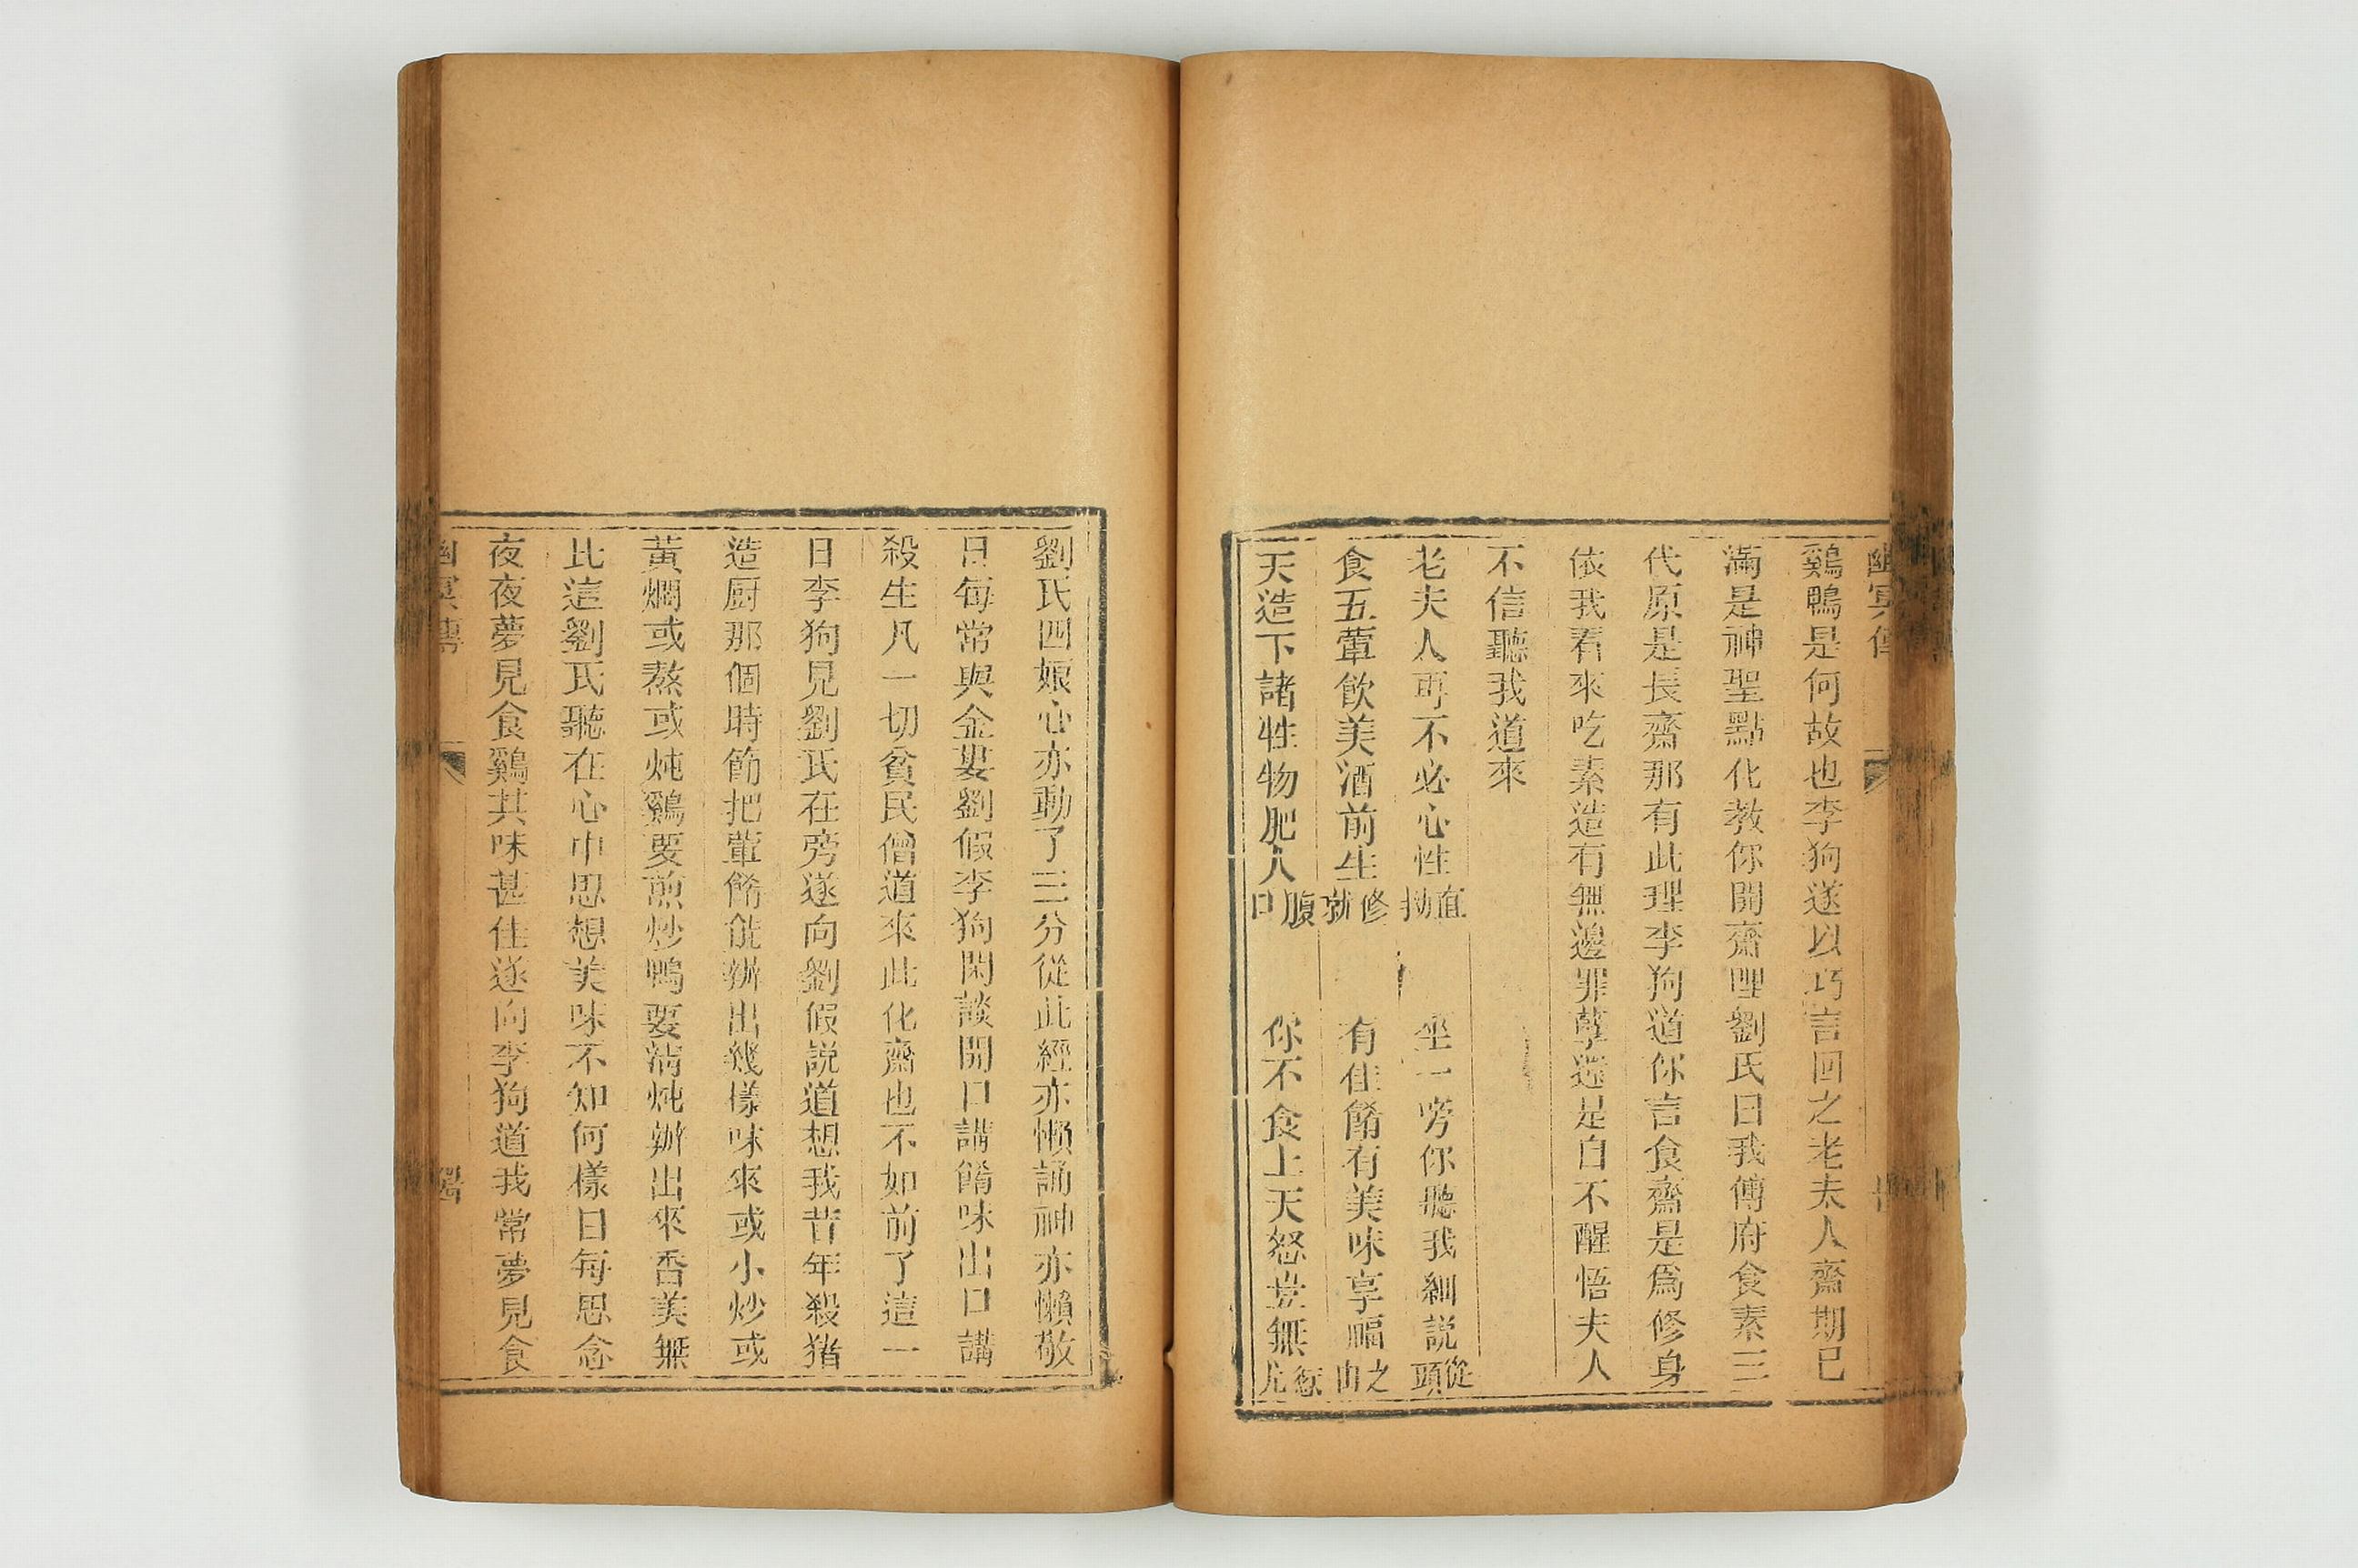 幽冥傳
鷄鴨是何故也李狗遂以巧言回之老夫人齋期已
滿是神聖點化教你開齋哩劉氏曰我傅府食素三
代原是長齋那有此理李狗道你言食齋是爲修身
依我看來吃素造有無邊罪孽還是自不醒悟夫人
不信聽我道來
老夫人再不必心性直拗 坐一旁你聽我細説從頭
食五葷飲美酒前生修就 有佳餚有美味享福之由
天造下諸牲物肥人腹口 你不食上天怒豈無愆尤
劉氏四娘心亦動了三分從此經亦懶誦神亦懶敬
日每常與金婁劉假李狗閑談開口講餚味出口講
殺生凡一切貧民僧道來此化齋也不如前了這一
日李狗見劉氏在旁遂向劉假説道想我昔年殺猪
造厨那個時節把葷餚饌辦出幾樣味來或小炒或
黃燜或熬或炖鷄要煎炒鴨要清炖辦出來香美無
比這劉氏聽在心中思想美味不知何樣日每思念
夜夜夢見食鷄其味甚佳遂向李狗道我常夢見食
幽冥傳